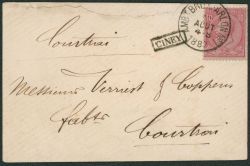 Courtrai
CINEY
AOUT
188
Messieurs Verriest & Coppens
fabts
Courtrai